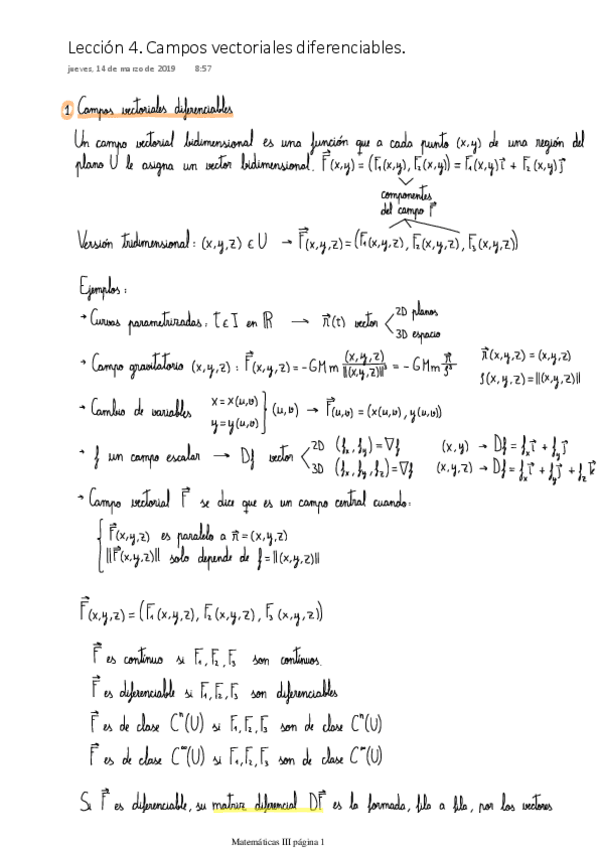 Lección 4. Campos vectoriales diferenciables.
jueves, 14 de marzo de 2019 8:57
1 Campos vectoriales diferenciables
Un campo vectorial bidimensional es una función que a cada punto (x,y) de una región del
plano U le asigna un vector bidimensional. F⃗(x,y) = (F₁(x,y), F₂(x,y)) = F₁(x,y)i⃗ + F₂(x,y)j⃗
componentes
del campo F⃗
Versión tridimensional: (x,y,z) ∈ U → F⃗(x,y,z) = (F₁(x,y,z), F₂(x,y,z), F₃(x,y,z))
Ejemplos:
→ Curvas parametrizadas: t ∈ I en ℝ → r⃗(t) vector < 2D planos
3D espacio
→ Campo gravitatorio (x,y,z): F⃗(x,y,z) = -GMm (x,y,z)/||(x,y,z)||³ = -GMm r⃗/ρ³ r⃗(x,y,z) = (x,y,z)
ρ(x,y,z) = ||(x,y,z)||
→ Cambio de variables x = x(u,v) y = y(u,v) } (u,v) → F⃗(u,v) = (x(u,v), y(u,v))
→ f un campo escalar → Df vector < 2D (fx, fy) = ∇f (x,y) → Df = fx i⃗ + fy j⃗
3D (fx, fy, fz) = ∇f (x,y,z) → Df = fx i⃗ + fy j⃗ + fz k⃗
→ Campo vectorial F⃗ se dice que es un campo central cuando:
{ F⃗(x,y,z) es paralelo a r⃗ = (x,y,z)
||F⃗(x,y,z)|| solo depende de ρ = ||(x,y,z)||
F⃗(x,y,z) = (F₁(x,y,z), F₂(x,y,z), F₃(x,y,z))
F⃗ es continuo si F₁, F₂, F₃ son continuos.
F⃗ es diferenciable si F₁, F₂, F₃ son diferenciables
F⃗ es de clase Cⁿ(U) si F₁, F₂, F₃ son de clase Cⁿ(U)
F⃗ es de clase C^∞(U) si F₁, F₂, F₃ son de clase C^∞(U)
Si F⃗ es diferenciable, su matriz diferencial DF⃗ es la formada, fila a fila, por los vectores
Matemáticas III página 1